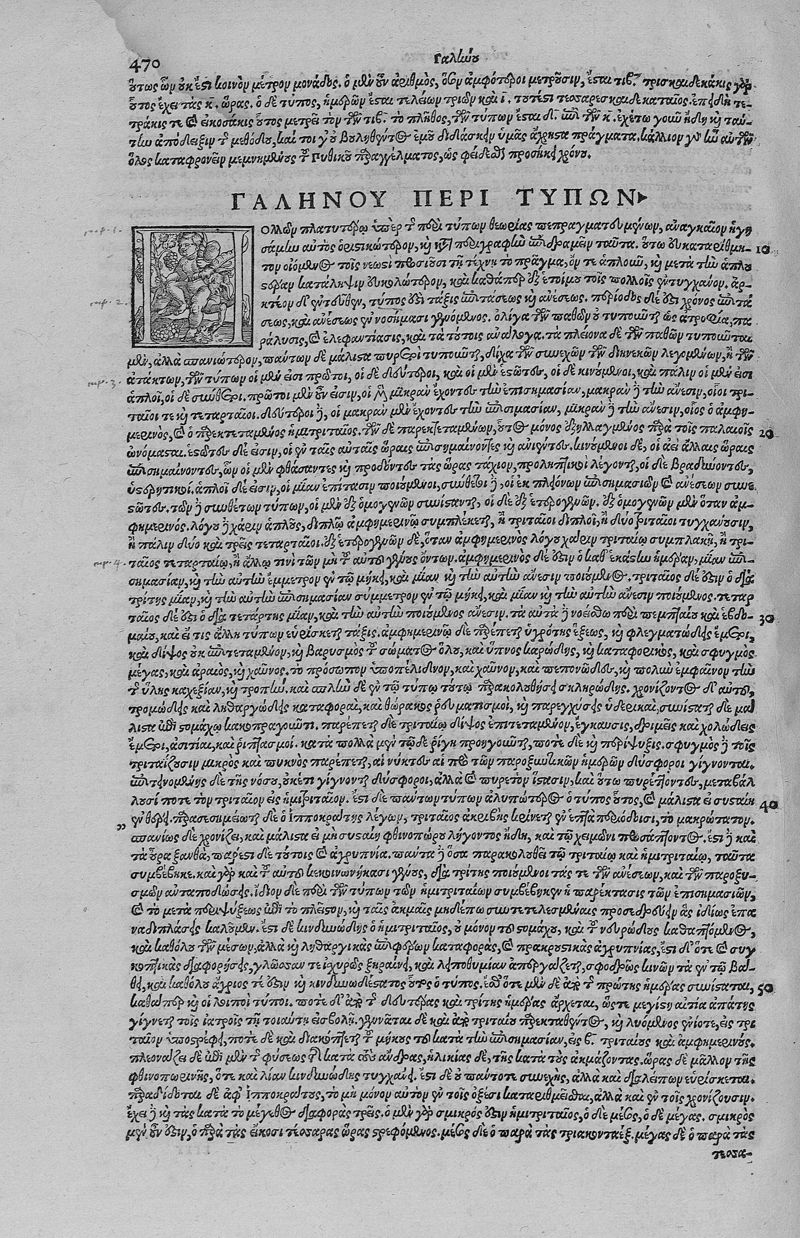 470 Γαληνοῦ
οὕτως οὖν οὐκ ἔστι κοινὸν μέτρον μονάδος. ὁ μὲν οὖν ἀριθμὸς, ὃν ἀμφότεροι μετροῦσιν, ἔσται τιβ. τρισκαιδεκάκις γὰρ
οὗτος ἔχει τὰς κ. ὥρας. ὁ δὲ τύπος, ἡμερῶν ἔσται τελείων τριῶν καὶ ι. τουτέστι τεσσαρεσκαιδεκαταῖος. ἐπειδὴ τε-
τράκις τε καὶ εἰκοσάκις οὗτος μετρεῖ τὸν τῶν τιβ. τὸ πλῆθος, τῶν τύπων ἔσται
τὴν ἀπόδειξιν τῆς μεθόδου, καί τοι γε οὐ βουληθέντος ἐμοῦ διδάσκειν ὑμᾶς ἄχρηστα πράγματα. κάλλιον γὰρ ἦν αὐτῶν
ὅλως καταφρονεῖν μεμνημένους τοῦ Πυθικοῦ παραγγέλματος, ὡς φείδεσθαι προσήκει χρόνου.
ΓΑΛΗΝΟΥ ΠΕΡΙ ΤΥΠΩΝ
ΠΟΛΛΩΝ πλατυτέρων ὑπὲρ τῆς περὶ τύπων θεωρίας πεπραγματευμένων, ἀναγκαῖον ἡγη
σάμην αὐτὸς ὁριστικώτερον, καὶ περιγραφὴν ἐπιδραμεῖν ταῦτα. οὕτω δυσκαταρίθμη-
τον οἰόμενος τοῖς νεωστὶ προσιοῦσι τῇ τέχνῃ τὸ πρᾶγμα, ὄν τε ἁπλοῦν, καὶ μετὰ τὴν ἁπλου 10
στέραν κατάληψιν εὐκολώτερον, καὶ καθάπερ ἐξ ἑτοίμου τοῖς πολλοῖς ἐντυγχάνον. ἀρ-
κτέον δ' ἐντεῦθεν, τύπος ἐστὶ τάξις ἐπιτάσεως καὶ ἀνέσεως. περίοδος δέ ἐστι χρόνος ἐπιτά
σεως, καὶ ἀνέσεως ἐν νοσήμασι γινόμενος. ὀλίγα τῶν παθῶν οὐ τυποῦται ὡς ἀτροφία, πα
ράλυσις, καὶ ἐλεφαντίασις, καὶ τὰ τούτοις ἀνάλογα. τὰ πλείονα δὲ τῶν παθῶν τυποῦται
μὲν, ἀλλὰ σπανιώτερον, πάντων δὲ μάλιστα πυρετοὶ τυποῦνται, δίχα τῶν συνεχῶν τῶν διηνεκῶν λεγομένων, ἢ τῶν
ἀτάκτων, τῶν τύπων οἱ μέν εἰσι πρῶτοι, οἱ δὲ δεύτεροι, καὶ οἱ μὲν ἑστῶτες, οἱ δὲ κινούμενοι, καὶ πάλιν οἱ μέν εἰσι
ἁπλοῖ, οἱ δὲ σύνθετοι. πρῶτοι μὲν οὖν εἰσιν, οἱ μικρὰν ἔχοντες τὴν ἐπισημασίαν, μακρὰν δὲ τὴν ἄνεσιν, οἷοι τρι-
ταῖοι τε καὶ τεταρταῖοι. δεύτεροι δὲ, οἱ μακρὰν μὲν ἔχοντες τὴν ἐπισημασίαν, μικρὰν δὲ τὴν ἄνεσιν, οἷος ὁ ἀμφη-
μερινὸς, καὶ ὁ παρεκτεταμένος ἡμιτριταῖος. τῶν δὲ παρεκτεταμένων, οὗτος μόνος ἐξηλλαγμένος παρὰ τοῖς παλαιοῖς 20
ὠνόμασται. ἑστῶτες δέ εἰσιν, οἱ ἐν ταῖς αὐταῖς ὥραις ἐπισημαίνοντες καὶ ἀνιέντες. κινούμενοι δὲ, οἱ ἀεὶ ἄλλαις ὥραις
ἐπισημαίνοντες, ὧν οἱ μὲν φθάσαντες καὶ προδόντες τὰς ὥρας τάχιον, προληπτικοὶ λέγονται, οἱ δὲ βραδύνοντες,
ὑστερητικοί. ἁπλοῖ δέ εἰσιν, οἱ μίαν ἐπίτασιν ποιούμενοι, σύνθετοι δὲ, οἱ ἐκ πλειόνων ἐπισημασιῶν καὶ ἀνέσεων συνε
στῶτες. τῶν δὲ συνθέτων τύπων, οἱ μὲν ἐξ ὁμογενῶν συνίστανται, οἱ δὲ ἐξ ἑτερογενῶν. ἐξ ὁμογενῶν μὲν ὅταν ἀμ-
φημερινὸς, λόγου χάριν ἁπλοῦς, διπλῷ ἀμφημερινῷ συμπλέκεται, ἢ τριταῖοι διπλοῖ, ἢ δύο τριταῖοι τυγχάνουσιν,
ἢ πάλιν δύο καὶ τρεῖς τεταρταῖοι. ἐξ ἑτερογενῶν δὲ, ὅταν ἀμφημερινὸς λόγου χάριν τριταίῳ συμπλακῇ, ἢ τρι-
ταῖος τεταρταίῳ, ἢ ἄλλῳ τινὶ τῶν μὴ τοῦ αὐτοῦ γένους ὄντων. ἀμφημερινὸς δέ ἐστιν ὁ καθ' ἑκάστην ἡμέραν, μίαν ἐπι-
σημασίαν, καὶ τὴν αὐτὴν ἔμμετρον ἐν τῷ μήκει, καὶ μίαν καὶ τὴν αὐτὴν ἄνεσιν ποιούμενος. τριταῖος δέ ἐστιν ὁ διὰ
τρίτης μίαν, καὶ τὴν αὐτὴν ἐπισημασίαν σύμμετρον ἐν τῷ μήκει, καὶ μίαν καὶ τὴν αὐτὴν ἄνεσιν ποιούμενος. τεταρ
ταῖος δέ ἐστι ὁ διὰ τετάρτης μίαν, καὶ τὴν αὐτὴν ποιούμενος ἄνεσιν. τὰ αὐτὰ δὲ νοείσθω περὶ πεμπταίου καὶ ἑβδο- 30
μαίου, καὶ εἴ τις ἄλλη τύπων εὑρίσκεται τάξις. ἀμφημερινῷ δὲ παρέπεται ὑγρότης ἕξεως, καὶ φλεγματώδεις ἔμετοι,
καὶ δίψος οὐκ ἐπιτεταμένον, καὶ βαρυσμὸς τοῦ σώματος ὅλου, καὶ ὕπνος καρώδης, καὶ κατάφορος, καὶ σφυγμὸς
μέγας, καὶ ἀραιὸς, καὶ χαῦνος. τὸ πρόσωπον ὑποπέλιδνον, καὶ χαῦνον, καὶ πεπονῶδες, καὶ πολὺν ἐμφαῖνον τὴν
τῆς ὕλης καχεξίαν, καὶ τροπὴν. καὶ σπλὴν δὲ ἐν τῷ τύπῳ τούτῳ παρακολουθήσει σκληρώδης. χρονίζοντος δ' αὐτοῦ,
τρομώδης καὶ ληθαργώδης καταφορὰ, καὶ θώρακος ῥευματισμοὶ, καὶ παρεγχύσεις ὑδερικαὶ, συνίσταται δὲ μά
λιστα ἐπὶ στομάχῳ κακοπραγοῦντι. παρέπεται δὲ τριταίῳ δίψος ἐπιτεταμένον, ἔγκαυσις, δριμεῖς καὶ χολώδεις
ἔμετοι, ἀσιτίαι, καὶ ῥιπτασμοί. κατὰ πολλὰ μὲν τῷδε ῥίγη προηγοῦνται, ποτὲ δὲ καὶ περίψυξις. σφυγμὸς δὲ τοῖς
τριταΐζουσιν μικρὸς καὶ πυκνὸς παρέπεται, αἱ νύκτες αἱ πρὸ τῶν παροξυσμικῶν ἡμερῶν δύσφοροι γίγνονται.
ἐπιτεινομένης δὲ τῆς νόσου, οὐκέτι γίγνονται δύσφοροι, ἀλλὰ καὶ πυρετὸν ἵστασιν, καὶ οὕτω πυρέττοντες, μεταβάλ
λουσί ποτε τὸν τριταῖον εἰς ἡμιτριταῖον. ἔστι δὲ πάντων τύπων ἀλυπώτερος ὁ τύπος οὗτος, καὶ μάλιστα εἰ συσταίη 40
ἐν θέρει. παρασεσημείωται δὲ ὁ Ἱπποκράτης λέγων, τριταῖος ἀκριβὴς κρίνεται ἐν ἑπτὰ περιόδοισι, τὸ μακρότατον.
„ σπανίως δὲ χρονίζει, καὶ μάλιστα εἰ μὴ συσταίη φθινοπώρου λήγοντος ἤδη, καὶ τῷ χειμῶνι προσάπτοντος. ἔστι δὲ καὶ
τὰ οὖρα ξανθὰ, πάρεστι δὲ τούτοις καὶ ἀγρυπνία. πάντα δὲ ὅσα παρακολουθεῖ τῷ τριταίῳ καὶ ἡμιτριταίῳ, ταῦτα
συμβέβηκε. καὶ γὰρ καὶ τοῦ αὐτοῦ κεκοινωνήκασι γένους, διὰ τρίτης ποιούμενοι τάς τε τῶν ἀνέσεων, καὶ τῶν παροξυ-
σμῶν ἀνταποδώσεις. ἴδιον δὲ περὶ τῶν τύπων τῶν ἡμιτριταίων συμβέβηκεν ἡ παρέκτασις τῶν ἐπισημασιῶν,
καὶ τὸ μετὰ περιψύξεως ἐπὶ τὸ πλεῖστον, καὶ ταῖς ἀκμαῖς μηδέπω συντετελεσμέναις προσεδρεύειν ἃς ἰδίως ἐπα
ναδιπλάσεις καλοῦμεν. ἔστι δὲ κινδυνώδης ὁ ἡμιτριταῖος, οὐ μόνον τοῦ στομάχου, καὶ τοῦ νευρώδους καθαπτόμενος,
καὶ καθόλου τῶν μέσων, ἀλλὰ καὶ ληθαργικὰς ἐπιφέρων καταφορὰς, καὶ παρακρουστικὰς ἀγρυπνίας, ἔστι δ' ὅτε καὶ συγ
κοπτικὰς διαφορήσεις, γλῶσσάν τε ἰσχυρῶς ξηραίνει, καὶ λειποθυμίαν ἀπεργάζεται, σφοδρῶς κινῶν τὰ ἐν τῷ βά-
θει, καὶ καθόλου ἄγριός τε ἐστὶν καὶ κινδυνωδέστατος οὗτος ὁ τύπος. ἔσθ' ὅτε μὲν ἀπὸ τῆς πρώτης ἡμέρας συνίσταται, 50
καθάπερ καὶ οἱ λοιποὶ τύποι. ποτὲ δ' ἀπὸ τῆς δευτέρας καὶ τρίτης ἡμέρας ἄρχεται, ὥστε μεγίστη αἰτία ἀπάτης
γίγνεται τοῖς ἰατροῖς τῇ τοιαύτῃ εἰσβολῇ. γίνεται δὲ καὶ ἀπὸ τριταίου παρεκταθέντος, καὶ λυόμενος ἐνίοτε, εἰς τρι
ταῖον ὑποστρέφει, ποτὲ δὲ καὶ διακοπεὶς τοῦ μήκους τοῦ κατὰ τὴν ἐπισημασίαν, εἰς β. τριταίους καὶ ἀμφημερινὸς.
πλεονάζει δὲ ἐπὶ μὲν τῆς φύσεως κατὰ τοὺς ἄνδρας, ἡλικίας δὲ, τῆς κατὰ τοὺς ἀκμάζοντας. ὥρας δὲ μᾶλλον τῆς
φθινοπωρινῆς, ὅτε καὶ λίαν κινδυνώδης τυγχάνει. ἔστι δὲ οὐ πάντοτε συνεχὴς, ἀλλὰ καὶ διαλείπων εὑρίσκεται.
παραδίδοται δὲ ἀφ' Ἱπποκράτους, τὸ μὴ μόνον αὐτὸν ἐν τοῖς ὀξέσι καταριθμεῖσθαι, ἀλλὰ καὶ ἐν τοῖς χρονίζουσιν.
ἔχει δὲ καὶ τὰς κατὰ τὸ μέγεθος διαφορὰς τρεῖς. ὁ μὲν γὰρ σμικρός ἐστιν ἡμιτριταῖος, ὁ δὲ μέσος, ὁ δὲ μέγας. σμικρὸς
μὲν οὖν ἐστιν, ὁ παρὰ τὰς εἴκοσι τέσσαρας ὥρας στρεφόμενος. μέσος δὲ ὁ παρὰ τὰς τριακονταέξ. μέγας δὲ ὁ παρὰ τὰς
τεσσα-